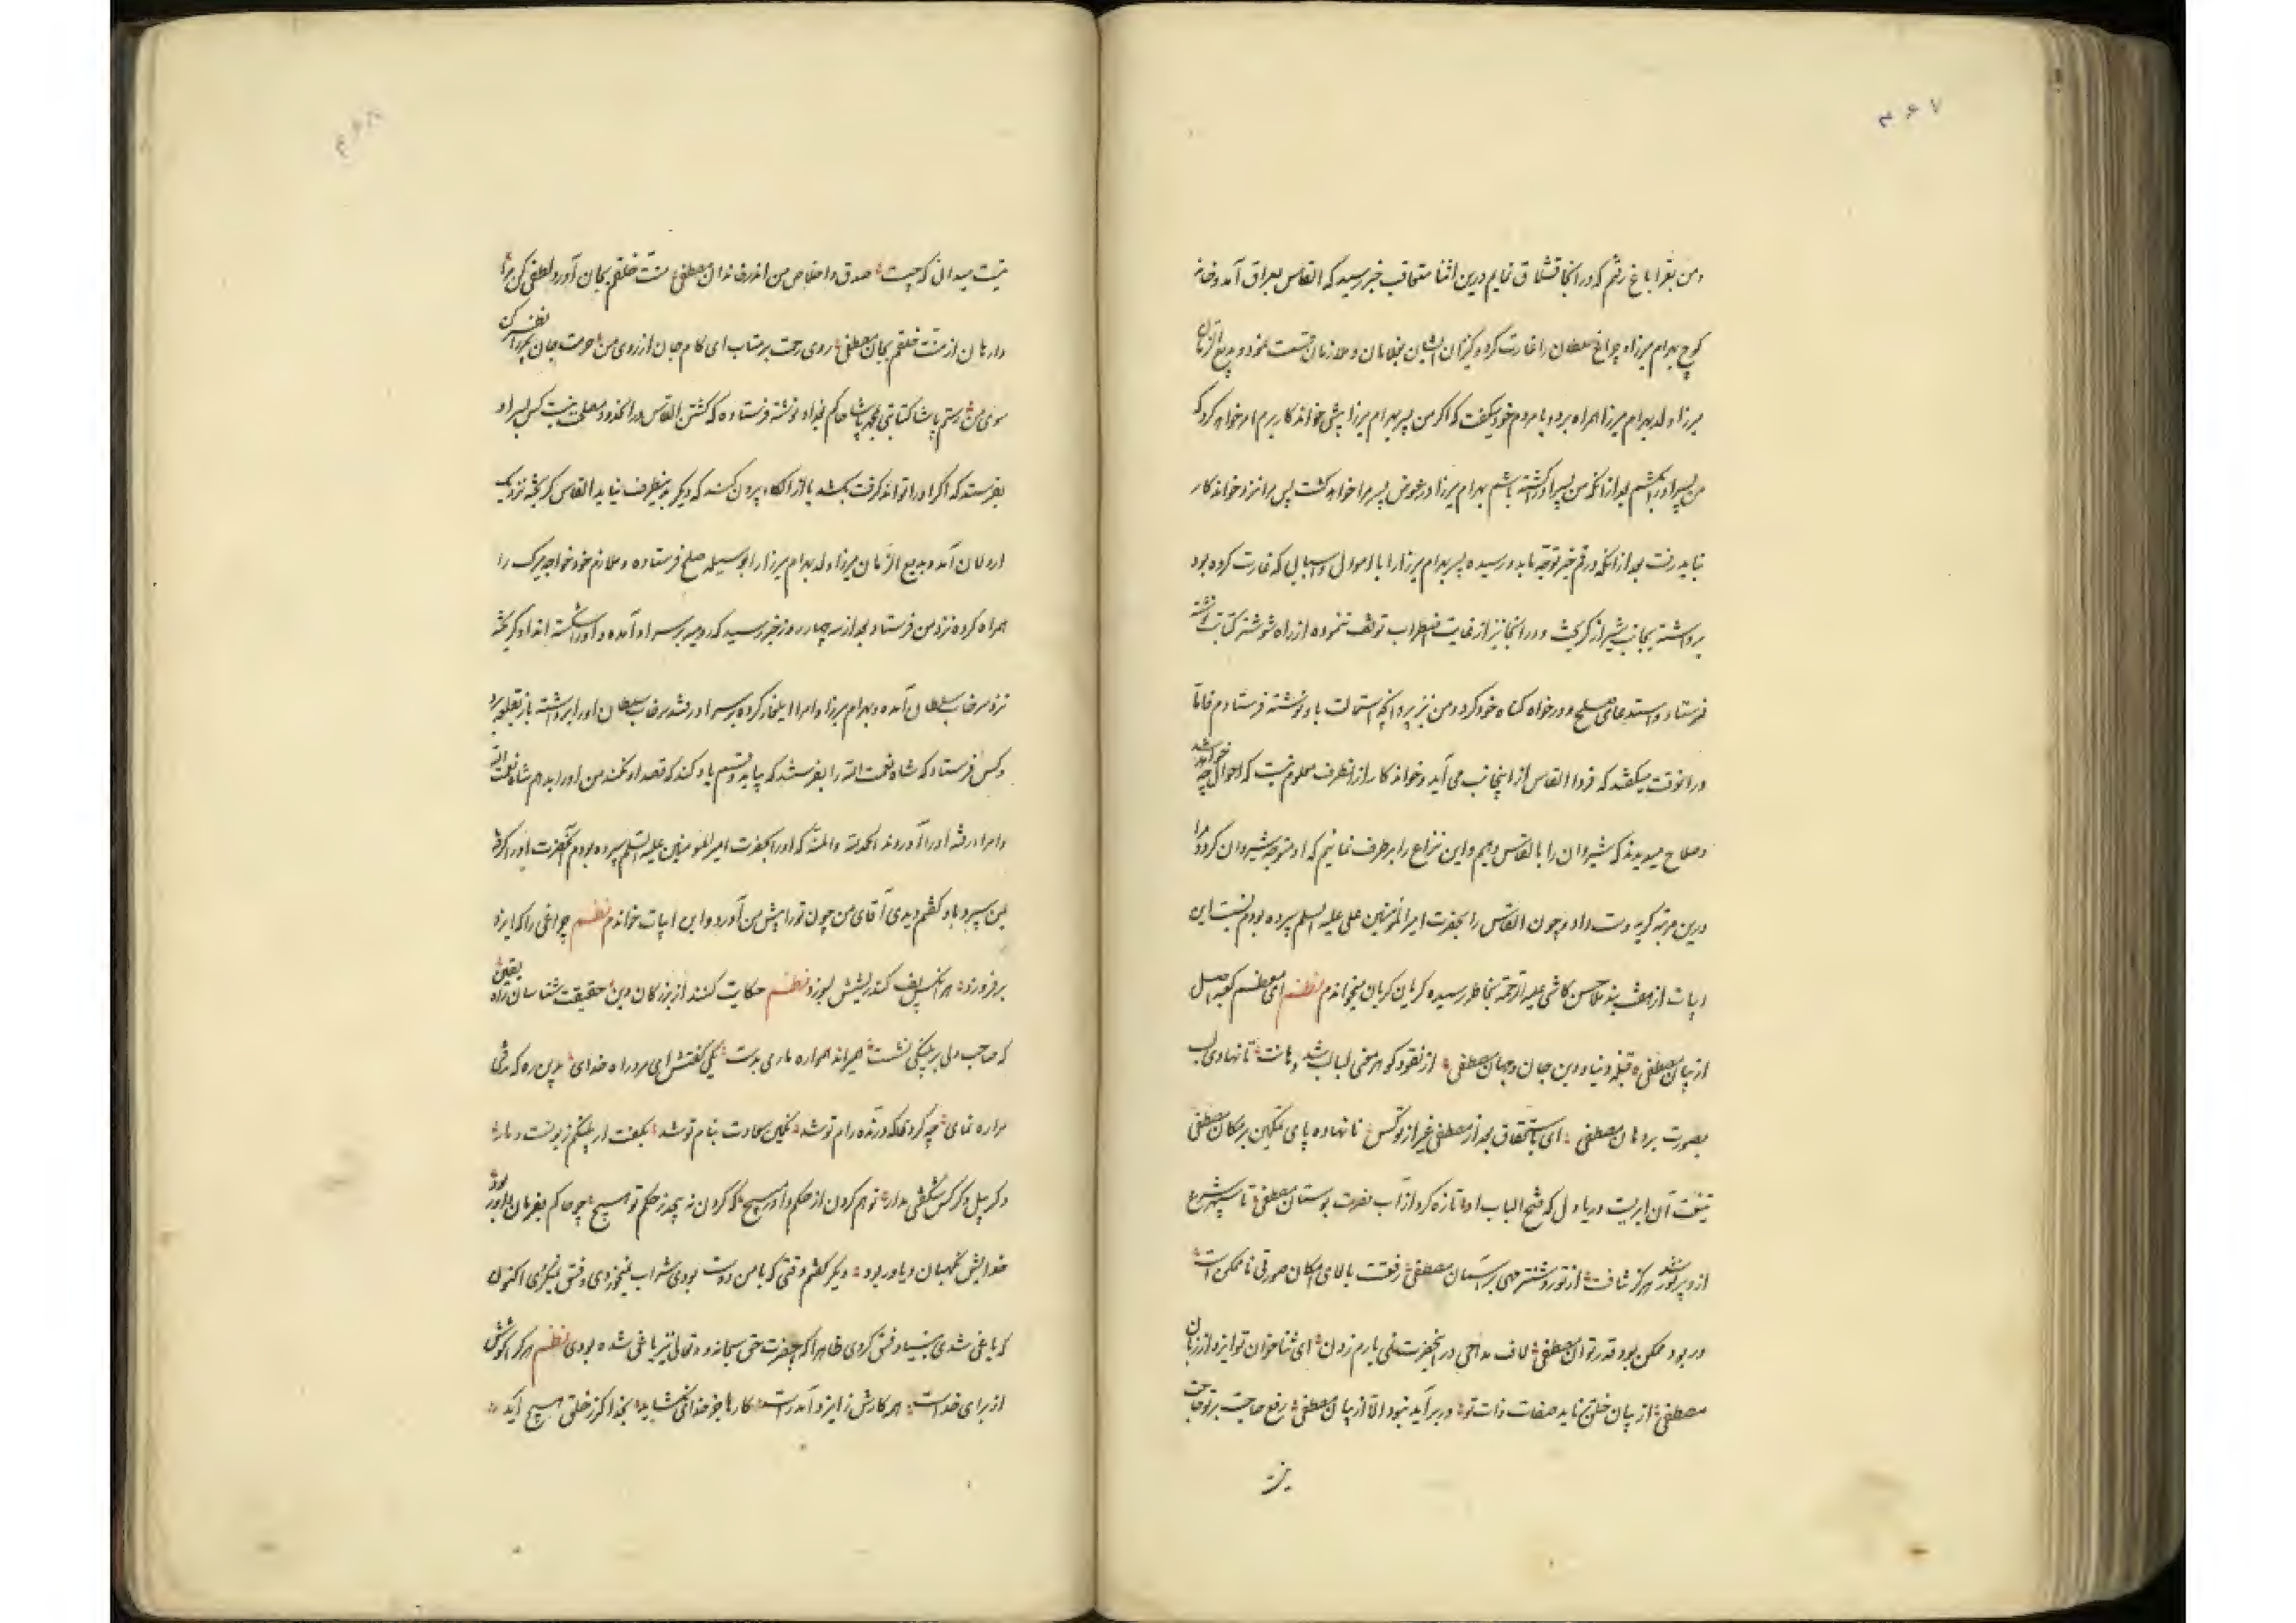 ۲۶۷
و من بقراباغ رفتم که در آنجا قشلاق نمایم درین اثنا متعاقب خبر رسید که القاس بعراق آمد و خانه
کوچ بهرام میرزا و چراغ سلطان را غارت کرد و کنیزان ایشان بغلامان و ملازمان قسمت نمود و بدیع الزمان
میرزا ولد بهرام میرزا همراه برد و با مردم خود میگفت که اگر من پسر بهرام میرزا پیش خواندکار برم امر خواهد کرد که
من پسر او را بکشم بعد از آنکه من پسر او را کشته باشم بهرام میرزا در عوض پسر مرا خواهد کشت پس مرا نزد خواندکار
نباید رفت بعد از آنکه در قم خبر توجه ما بدو رسیده پسر بهرام میرزا را با اموال و اسبابی که غارت کرده بود
برداشته بجانب شیراز گریخت و در آنجا نیز از غایت اضطراب توقف ننموده از راه شوشتر کتابت نوشته
فرستاد و استدعای صلح و درخواه گناه خود کرد و من نیز پروانچه استمالت باو نوشته فرستادم غالبا
در آنوقت میگفتند که فردا القاس از اینجانب می آید و خواندکار از آنطرف معلوم نیست که احوال چه خواهد شد
و صلاح میدیدند که شیروان را بالقاس دهیم و این نزاع را برطرف نمائیم که او متوجه شیروان گردد مرا
درین مرتبه گریه دست داد و چون القاس را بحضرت امیرالمؤمنین علی علیه السلم سپرده بودم این
ابیات از هفت بند ملا حسن کاشی علیه الرحمة بخاطر رسیده گریان گریان میخواندم نظم ای معظم کعبه اصل
از بیان مصطفی قبله دنیا و دین جان و جهان مصطفی از نقود گوهر معنی لبالب شد دهانت تا نهادی لب
بصورت بر دهان مصطفی ای باستحقاق بعد از مصطفی غیر از تو کس نانهاده پای تمکین بر مکان مصطفی
تیغت آن ابریست دریا دل که فتح الباب او تازه کرد از آب نصرت بوستان مصطفی تا سپهر شرع
ازو پر نور شد هرگز نتافت از تو روشنتر مهی بر آسمان مصطفی رفعت بالای امکان صورتی ناممکن است
ور بود ممکن بود قدر تو ان مصطفی لاف مداحی در آنحضرت نمی یارم زدن ای ثناخوان تو ایزد از زبان
مصطفی از بیان خلق ناید صفات ذات تو ور برآید نبود الا از بیان مصطفی رفع حاجت بر تو حاجت
نیز
نیست میدانی که چیست صدق و اخلاص من اندر خاندان مصطفی منت خلقم بجان آورد لطفی کن مرا
وارهان از منت خلقم بجان مصطفی روی رحمت برمتاب ای کام جان از روی من حرمت جان پیمبر نظر کن
سوی من رستم پاشا کتابتی بمحمد پاشا حاکم بغداد نوشته فرستاده که کشتن القاس در آن حدود مصلحت نیست کس بسر او
بفرستد که اگر او را تواند گرفت بکشد یا از آن الکاء بیرون کند که دیگر بدینطرف نیاید القاس گریخته نزدیک
اردلان آمد و بدیع الزمان میرزا ولد بهرام میرزا را بوسیله صلح فرستاده و ملازم خود خواجه میرک را
همراه کرده نزد من فرستاد بعد از سه چهار روز خبر رسید که رومیه بر سر او آمده و او را شکسته اند او گریخته
نزد سرخاب سلطان آمده و بهرام میرزا و امرا ایلغار کرده بر سر او رفتند سرخاب سلطان او را برداشته باز بقلعه برد
و کس فرستاد که شاه نعمت الله را بفرستند که بیاید و قسم یاد کند که قصد او نکنند من او را بدهم شاه نعمت الله
و امرا رفته او را آوردند الحمدلله والمنه که او را بحضرت امیرالمؤمنین علیه السلم سپرده بودم آنحضرت او را گرفته
بمن سپرد باو گفتم دیدی آقای من چون تو را پیش من آورد و این ابیات خواندم نظم چراغی را که ایزد
برفروزد هر آنکس پف کند ریشش بسوزد نظم حکایت کنند از بزرگان دین حقیقت شناسان راه یقین
که صاحب دلی بر پلنگی نشست همیراند همواره ماری بدست یکی گفتش ای مرد راه خدای بدین ره که رفتی
مرا ره نمای چه کردی که درنده رام تو شد نگین سعادت بنام تو شد بگفت ار پلنگم زبونست و مار
وگر پیل و کرکس شگفتی مدار تو هم گردن از حکم داور مپیچ که گردن نپیچد ز حکم تو هیچ چو حاکم بفرمان داور بود
خدایش نگهبان و یاور بود دیگر گفتم وقتی که با من دوست بودی شراب نمیخوردی و فسق نمیکردی اکنون
که یاغی شدی بنیاد فسق کردی ظاهرا که بحضرت حق سبحانه و تعالی نیز یاغی شده بودی نظم هر که را کوشش
از برای خداست همه کارش ز ایزد آمد راست کارها جز خدای نگشاید بخدا گر ز خلق هیچ آید